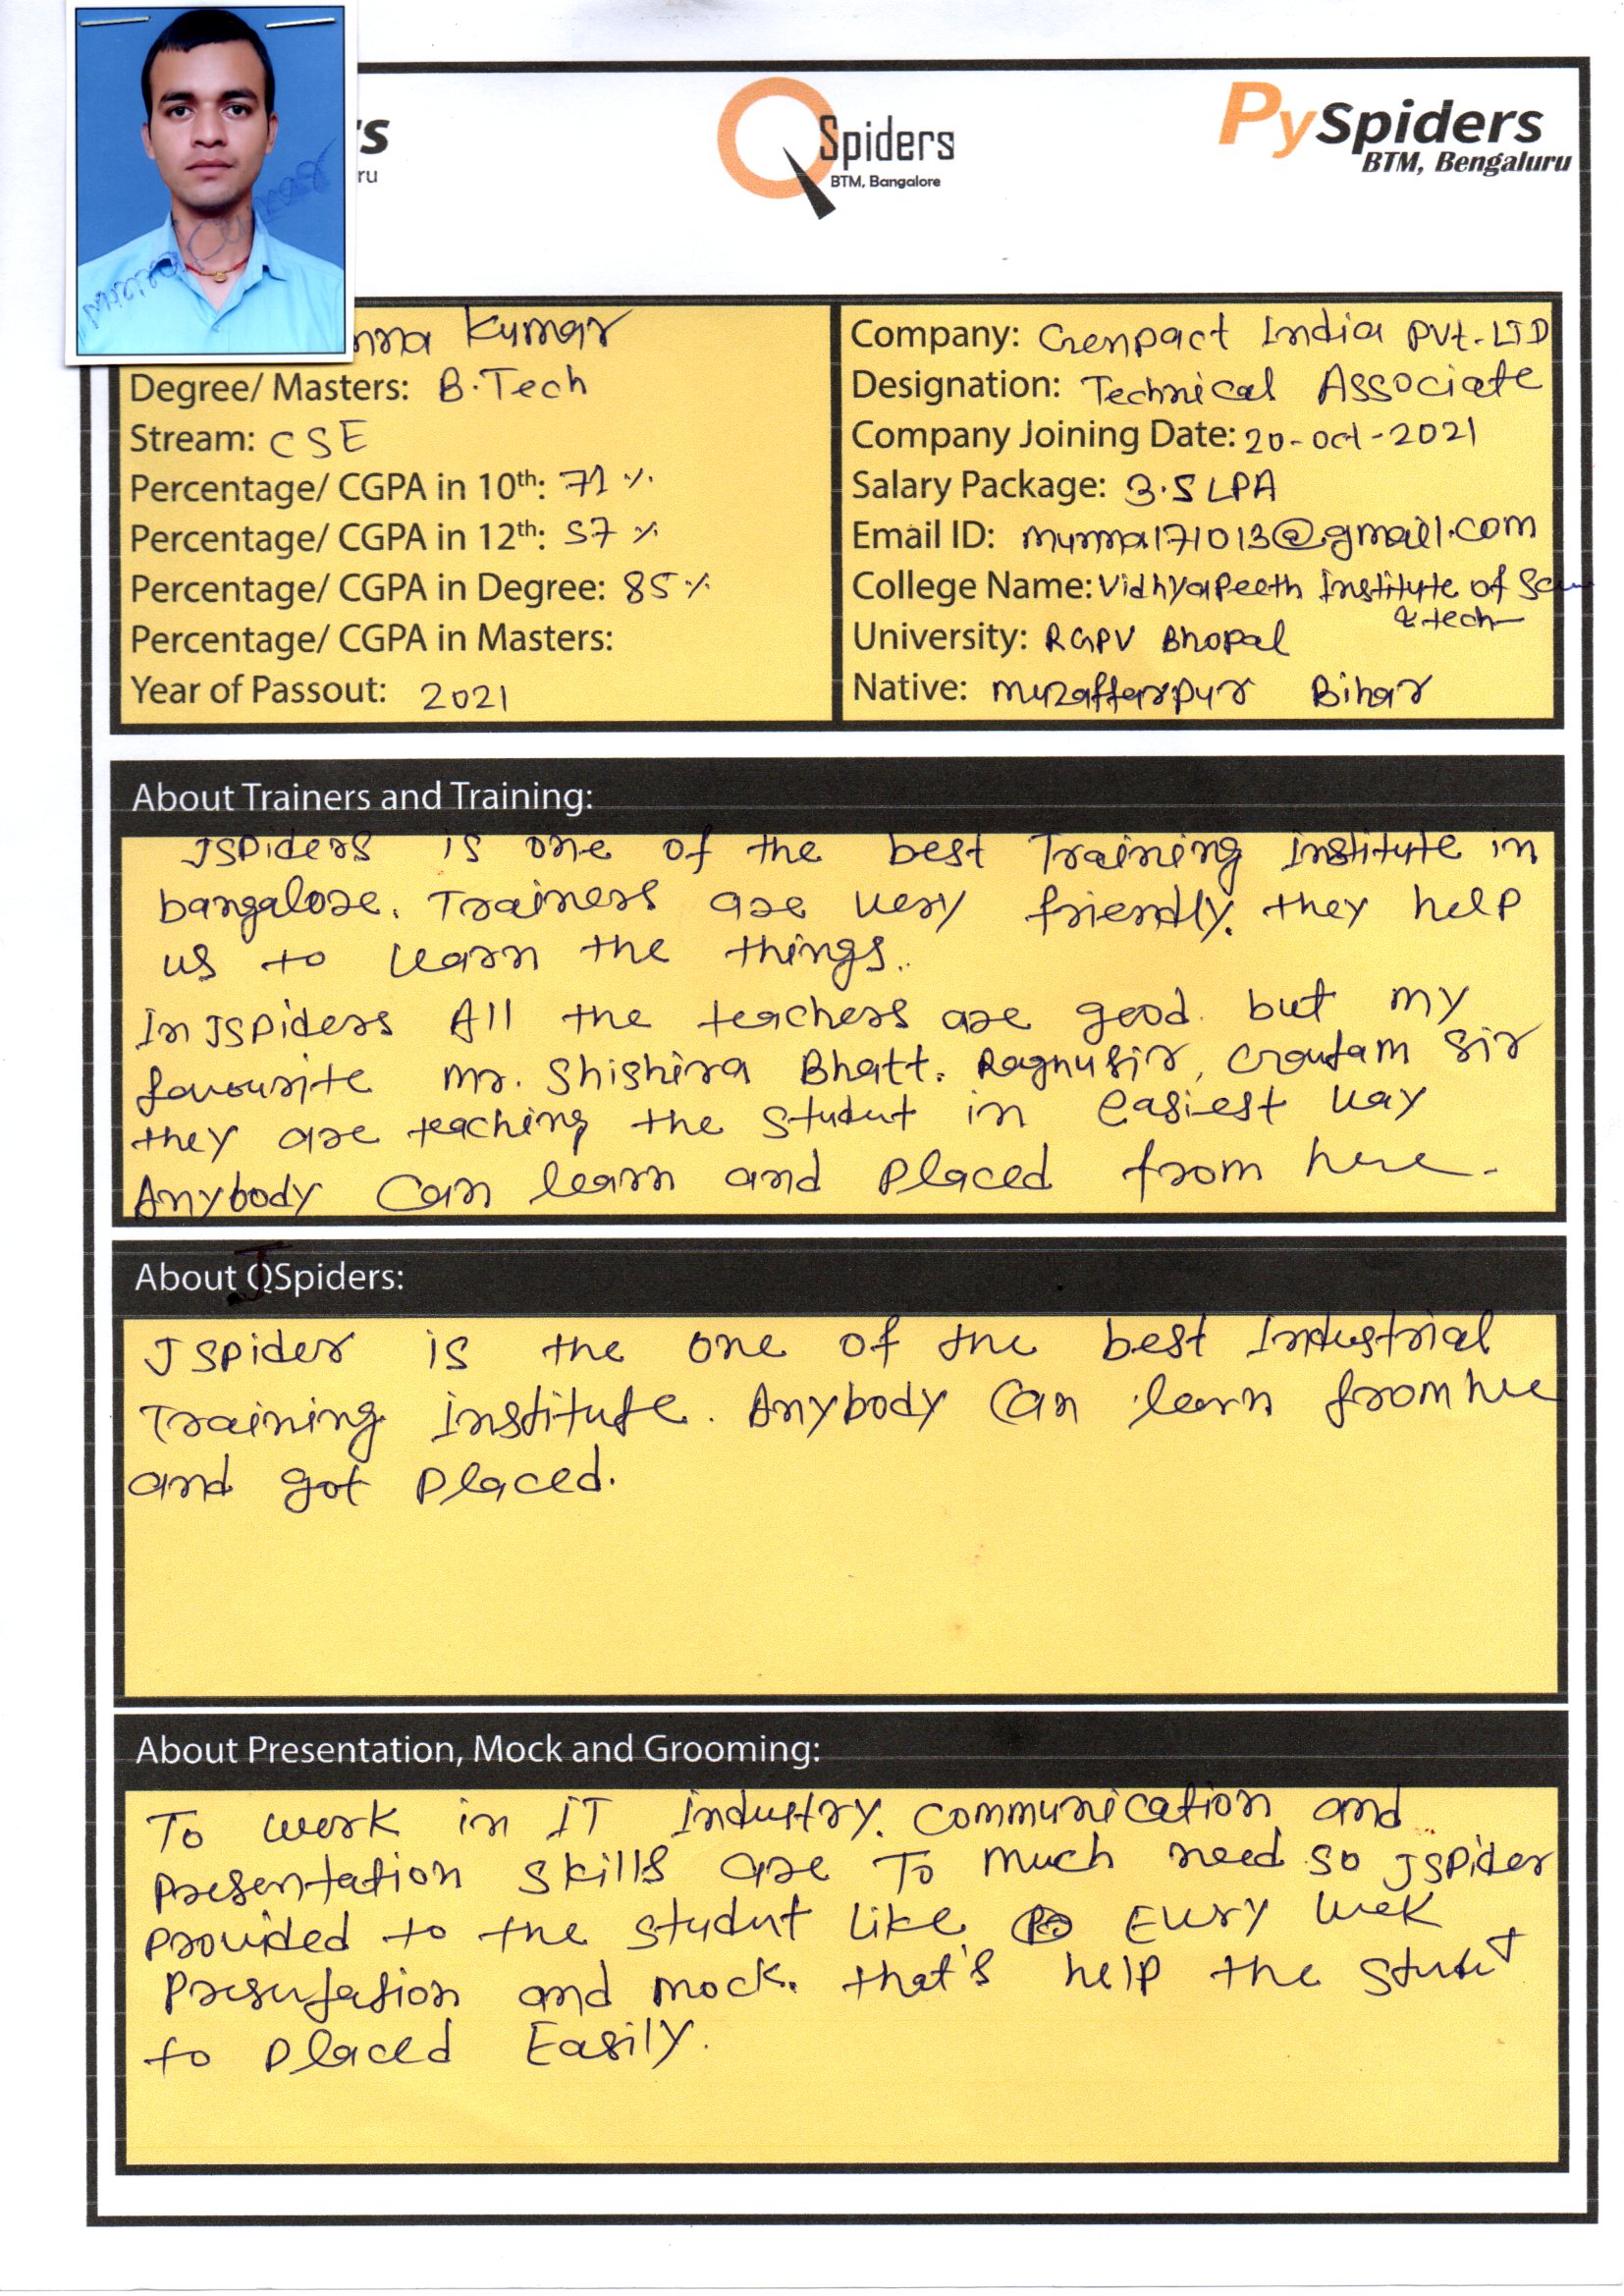 's
ru
QSpiders
BTM, Bangalore
PySpiders
BTM, Bengaluru
Munna Kumar
nna Kumar
Degree/ Masters: B.Tech
Stream: CSE
Percentage/ CGPA in 10th: 71 %
Percentage/ CGPA in 12th: 57 %
Percentage/ CGPA in Degree: 85 %
Percentage/ CGPA in Masters:
Year of Passout: 2021
Company: Genpact India Pvt. LTD
Designation: Technical Associate
Company Joining Date: 20-oct-2021
Salary Package: 3.5 LPA
Email ID: munna171013@gmail.com
College Name: Vidhyapeeth Institute of
& tech
University: RGPV Bhopal
Native: Muzaffarpur Bihar
About Trainers and Training:
JSpiders is one of the best Training institute in
bangalore. Trainers are very friendly. they help
us to learn the things.
In JSpiders All the teachers are good. but my
favourite Mr. Shishira Bhatt. Raghu sir, Goutam sir
they are teaching the studut in easiest way
Anybody Can learn and placed from here.
About JSpiders:
J Spider is the one of the best Industrial
Training institute. Anybody Can learn from hre
and got placed.
About Presentation, Mock and Grooming:
To work in IT Industry. communication and
presentation skills are To much need so JSpider
provided to the studut like Evry week
Presutation and mock. that's help the
to placed Easily.